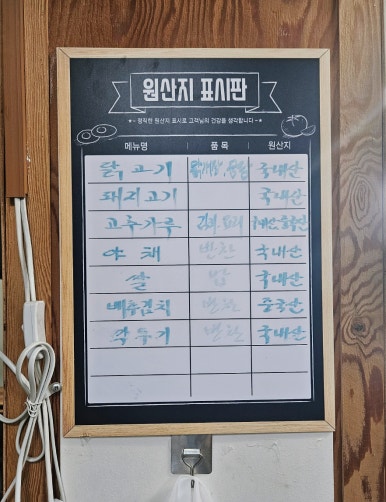 원산지 표시판
정직한 원산지 표시로 고객님의 건강을 생각합니다
메뉴명 품목 원산지
닭고기 국내산
돼지고기 국내산
고추가루
야채 반찬 국내산
쌀 밥 국내산
배추김치 반찬 중국산
깍두기 반찬 국내산